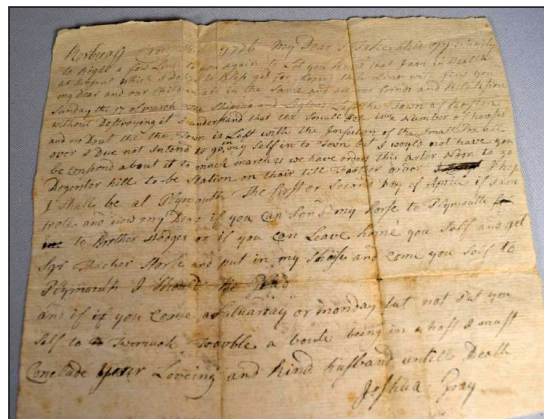 Roxbury 1776 My Dear I Take
to Right a few Lins to you again to Let you know that I am in Health
at Present which I
my Dear and our Children are in the Same and all our friends and
Sunday the 17 of march the Shiping and Left the Town of Boston
without Destroying it I understand that the Small Pox is in a Number of houses
and no Dout the the Town is Left with the Infection of the Small Pox all
over I Due not Intend to go in my Self in to Town but I would not have you
be about it to much march 21 we have orders this after Noon to go
Dogester hill to be Station on thair till farther order I hope
I Shall be at Plymouth The first or Second Day of April if I am
and now my Dear if you Can Send my Horse to Plymouth
to Brother Hodges or if you Can Leave home you Self and get
Sqr Thacher Horse and put in my and Come you Self to
Plymouth I
and if you Come a or monday but not Put you
Self to Trouble a being in a hast I must
Conclude your Loveing and Kind husband untill Death
Joshua Gray